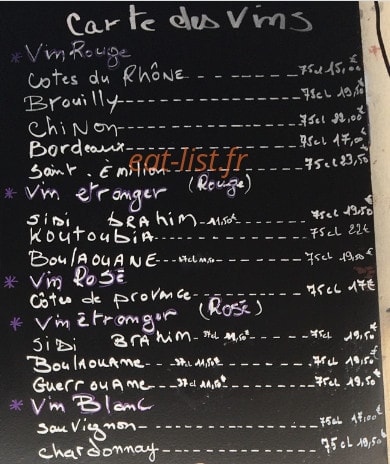 Carte des Vins
* Vin Rouge
Cotes du Rhône 75cl 15,00€
Brouilly 75cl 19,50€
Chinon 75cl 22,00€
Bordeaux 75cl 17,00€
Saint. Émilion 75cl 23,50
eat-list.fr
* Vin etranger (Rouge)
Sidi Brahim 11,50€ 75cl 19,50€
Koutoubia 75cl 22€
Boulaouane 75cl 19,50€
* Vin Rosé
Côtes de provence 75cl 17€
* Vin Étranger (Rosé)
Sidi Brahim 37cl 11,50€ 75cl 19,50€
Boulaouane 37cl 11,50€ 75cl 19,50€
Guerrouane 37cl 11,50€ 75cl 19,50€
* Vin Blanc
Sauvignon 75cl 17,00€
Chardonnay 75cl 19,50€